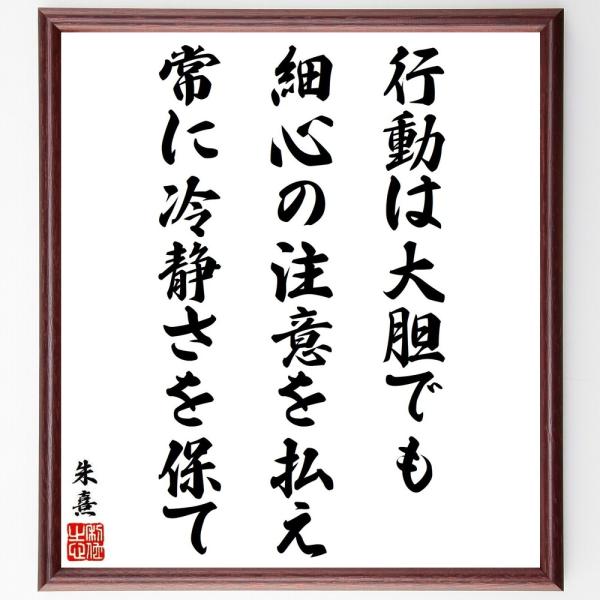 行動は大胆でも
細心の注意を払え
常に冷静さを保て
朱熹